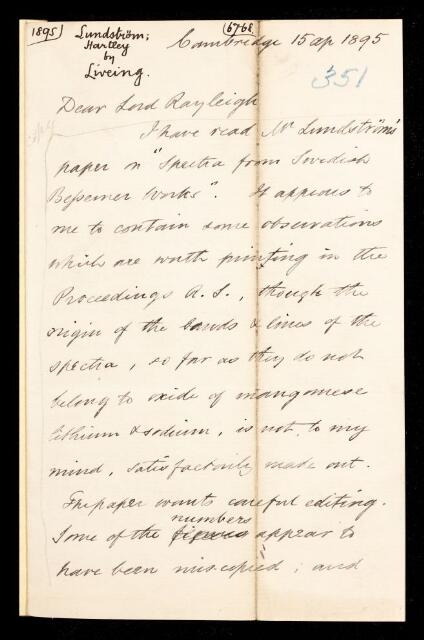 1895
Lundström;
Hartley
by
Liveing.
67-68
Cambridge 15 ap 1895
351
Dear Lord Rayleigh
I have read Mr Lundström's
paper on "Spectra from Swedish
Bessemer Works". It appears to
me to contain some observations
which are worth printing in the
Proceedings R. S., though the
origin of the bands & lines of the
spectra, so far as they do not
belong to oxide of manganese
lithium & sodium, is not, to my
mind, satisfactorily made out.
The paper wants careful editing.
Some of the figures numbers appear to
have been miscopied; and